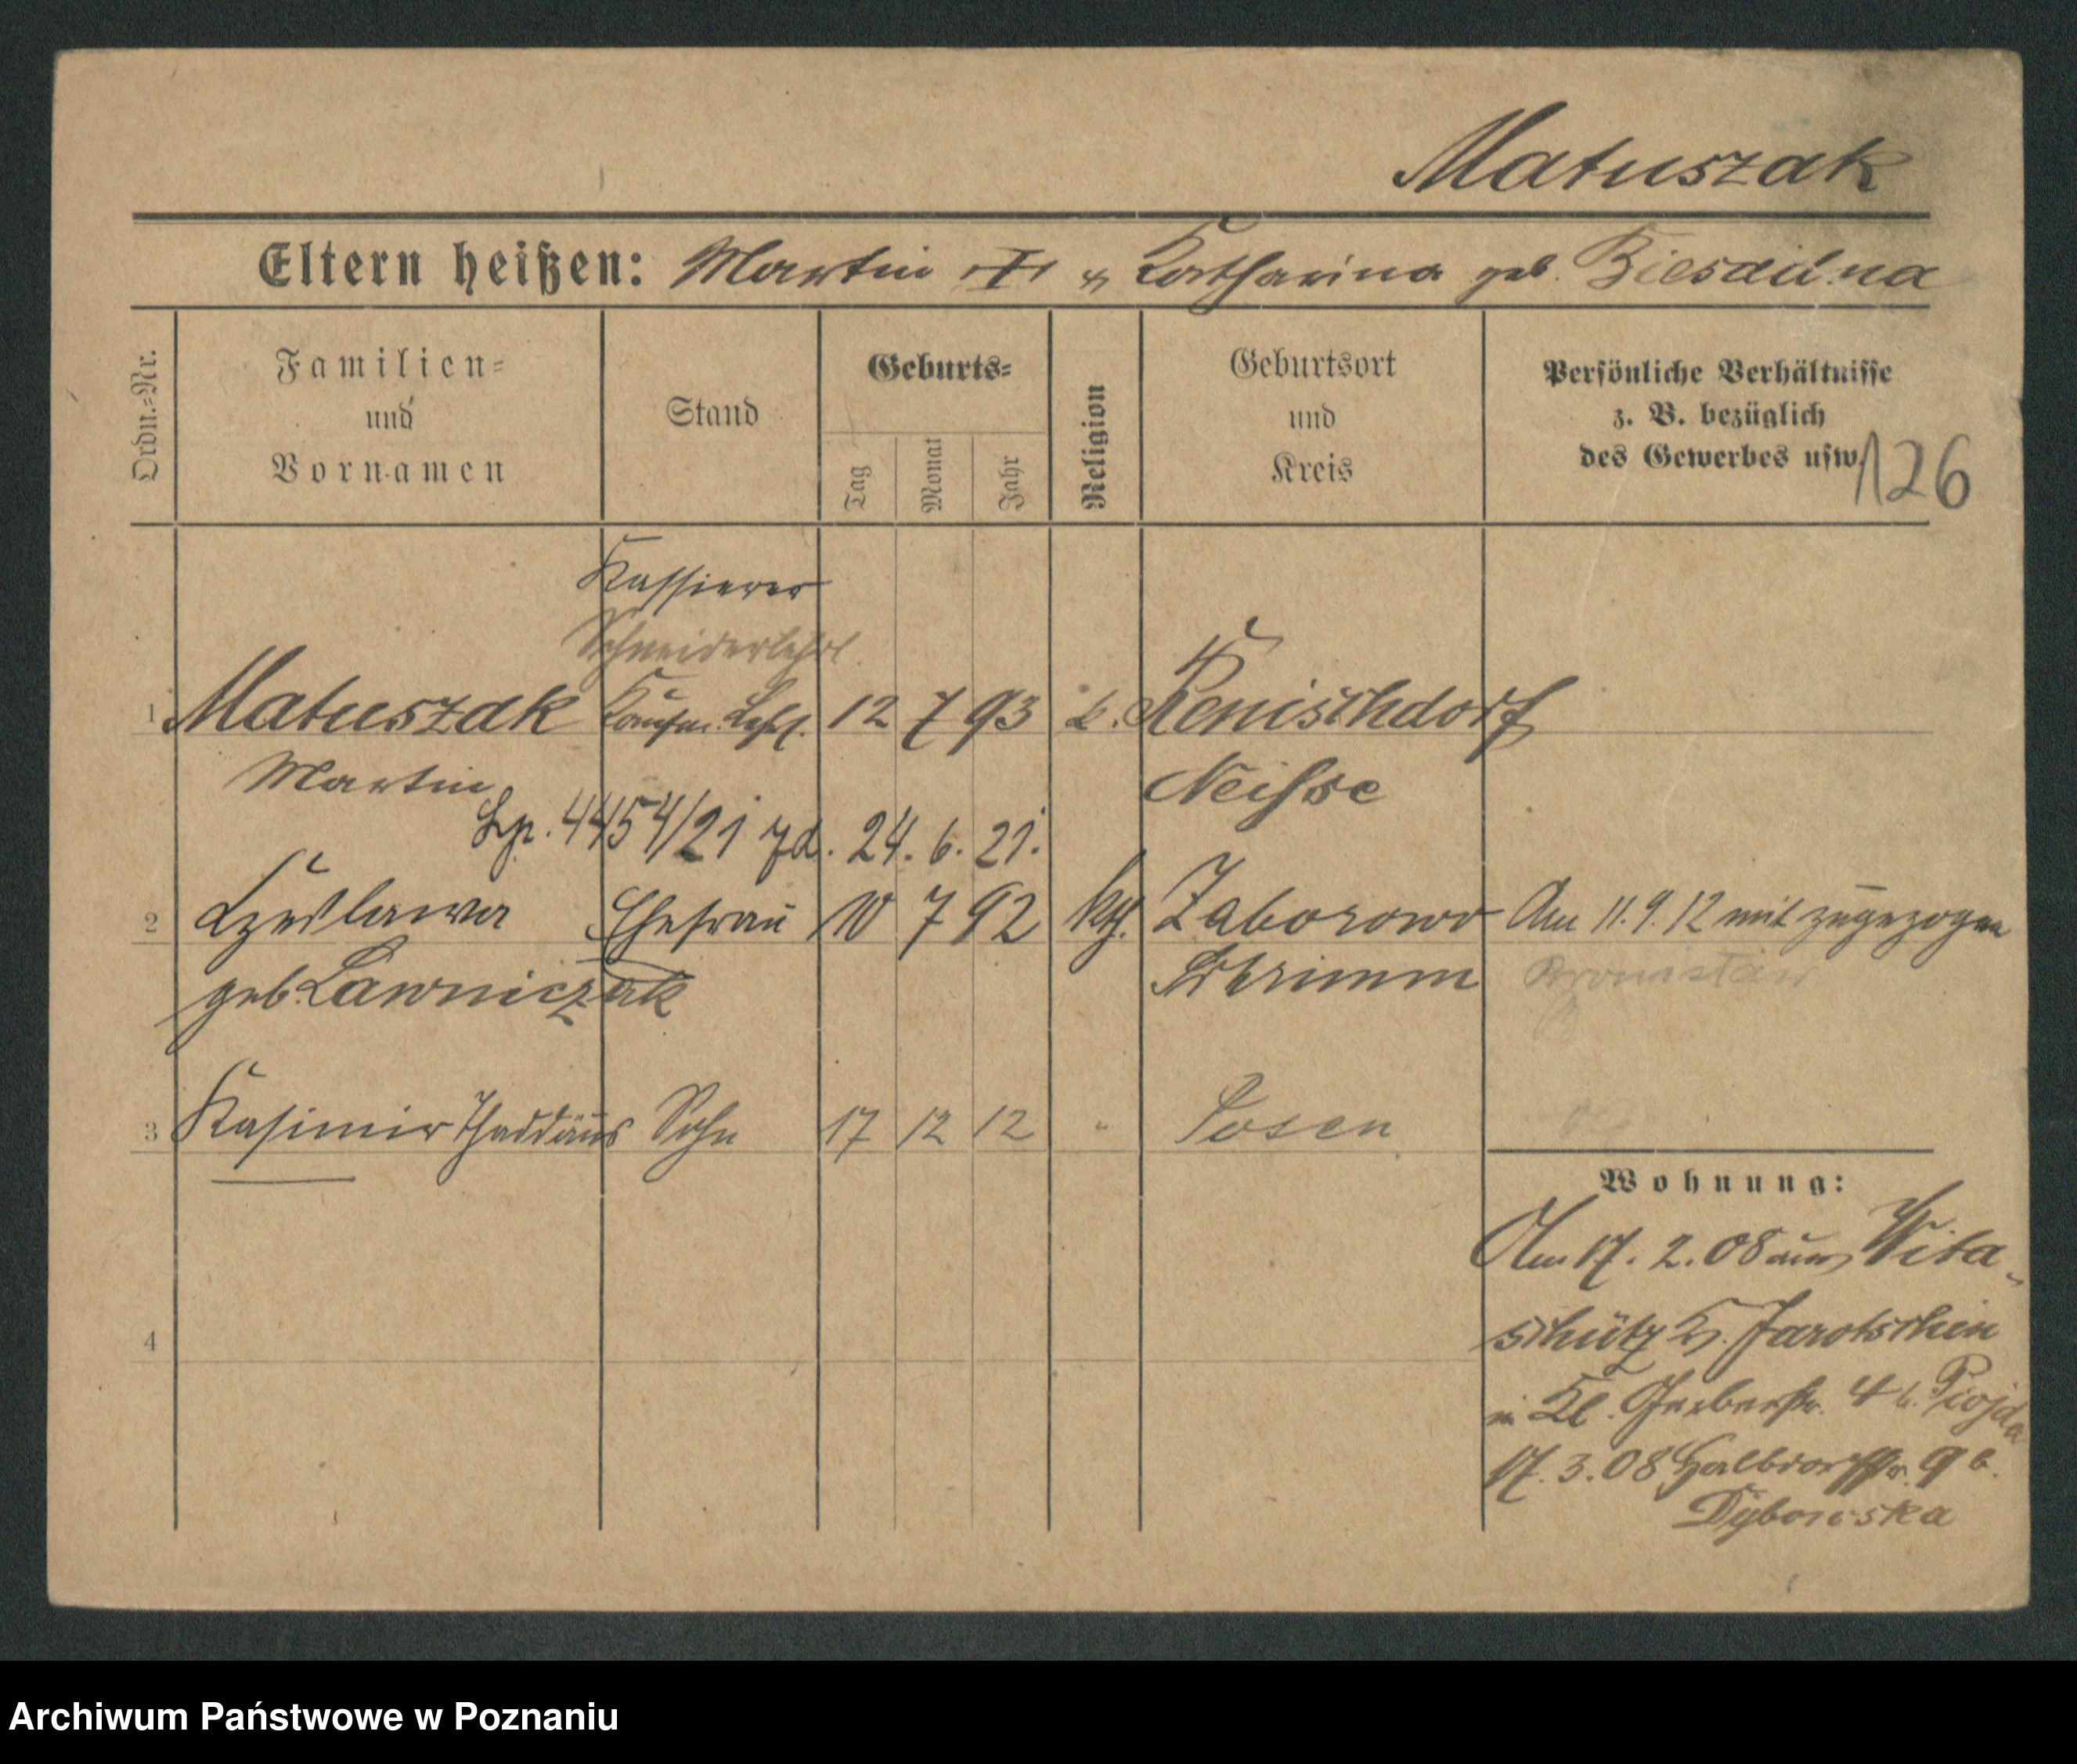 Matuszak
Eltern heißen: Martin u Katharina geb.
Ordn.=Nr.
Familien=
und
Vornamen
Stand
Geburts=
Tag
Monat
Jahr
Religion
Geburtsort
und
Kreis
Persönliche Verhältnisse
z. B. bezüglich
des Gewerbes usw.
126
Kassierer
Schneiderlehrl.
1 Matuszak Kaufm. Lehrl. 12 7 93 k.
Martin Neisse
4454/21 24. 6. 21.
2 Czeslawa Ehefrau 10 7 92 kth. Zaborowo Am 11. 9. 12 mit zugezogen
geb. Lawniczak Schrimm Bronislaw
3 Kasimir Thaddäus Sohn 17 12 12 " Posen
Wohnung:
Am 17. 2. 08 aus Wita-
schütz Kr. Jarotschin
4
in Kl. Gerberstr. 4 b.
17. 3. 08 Halbdorfstr. 9 b.
Dybowska
Archiwum Państwowe w Poznaniu